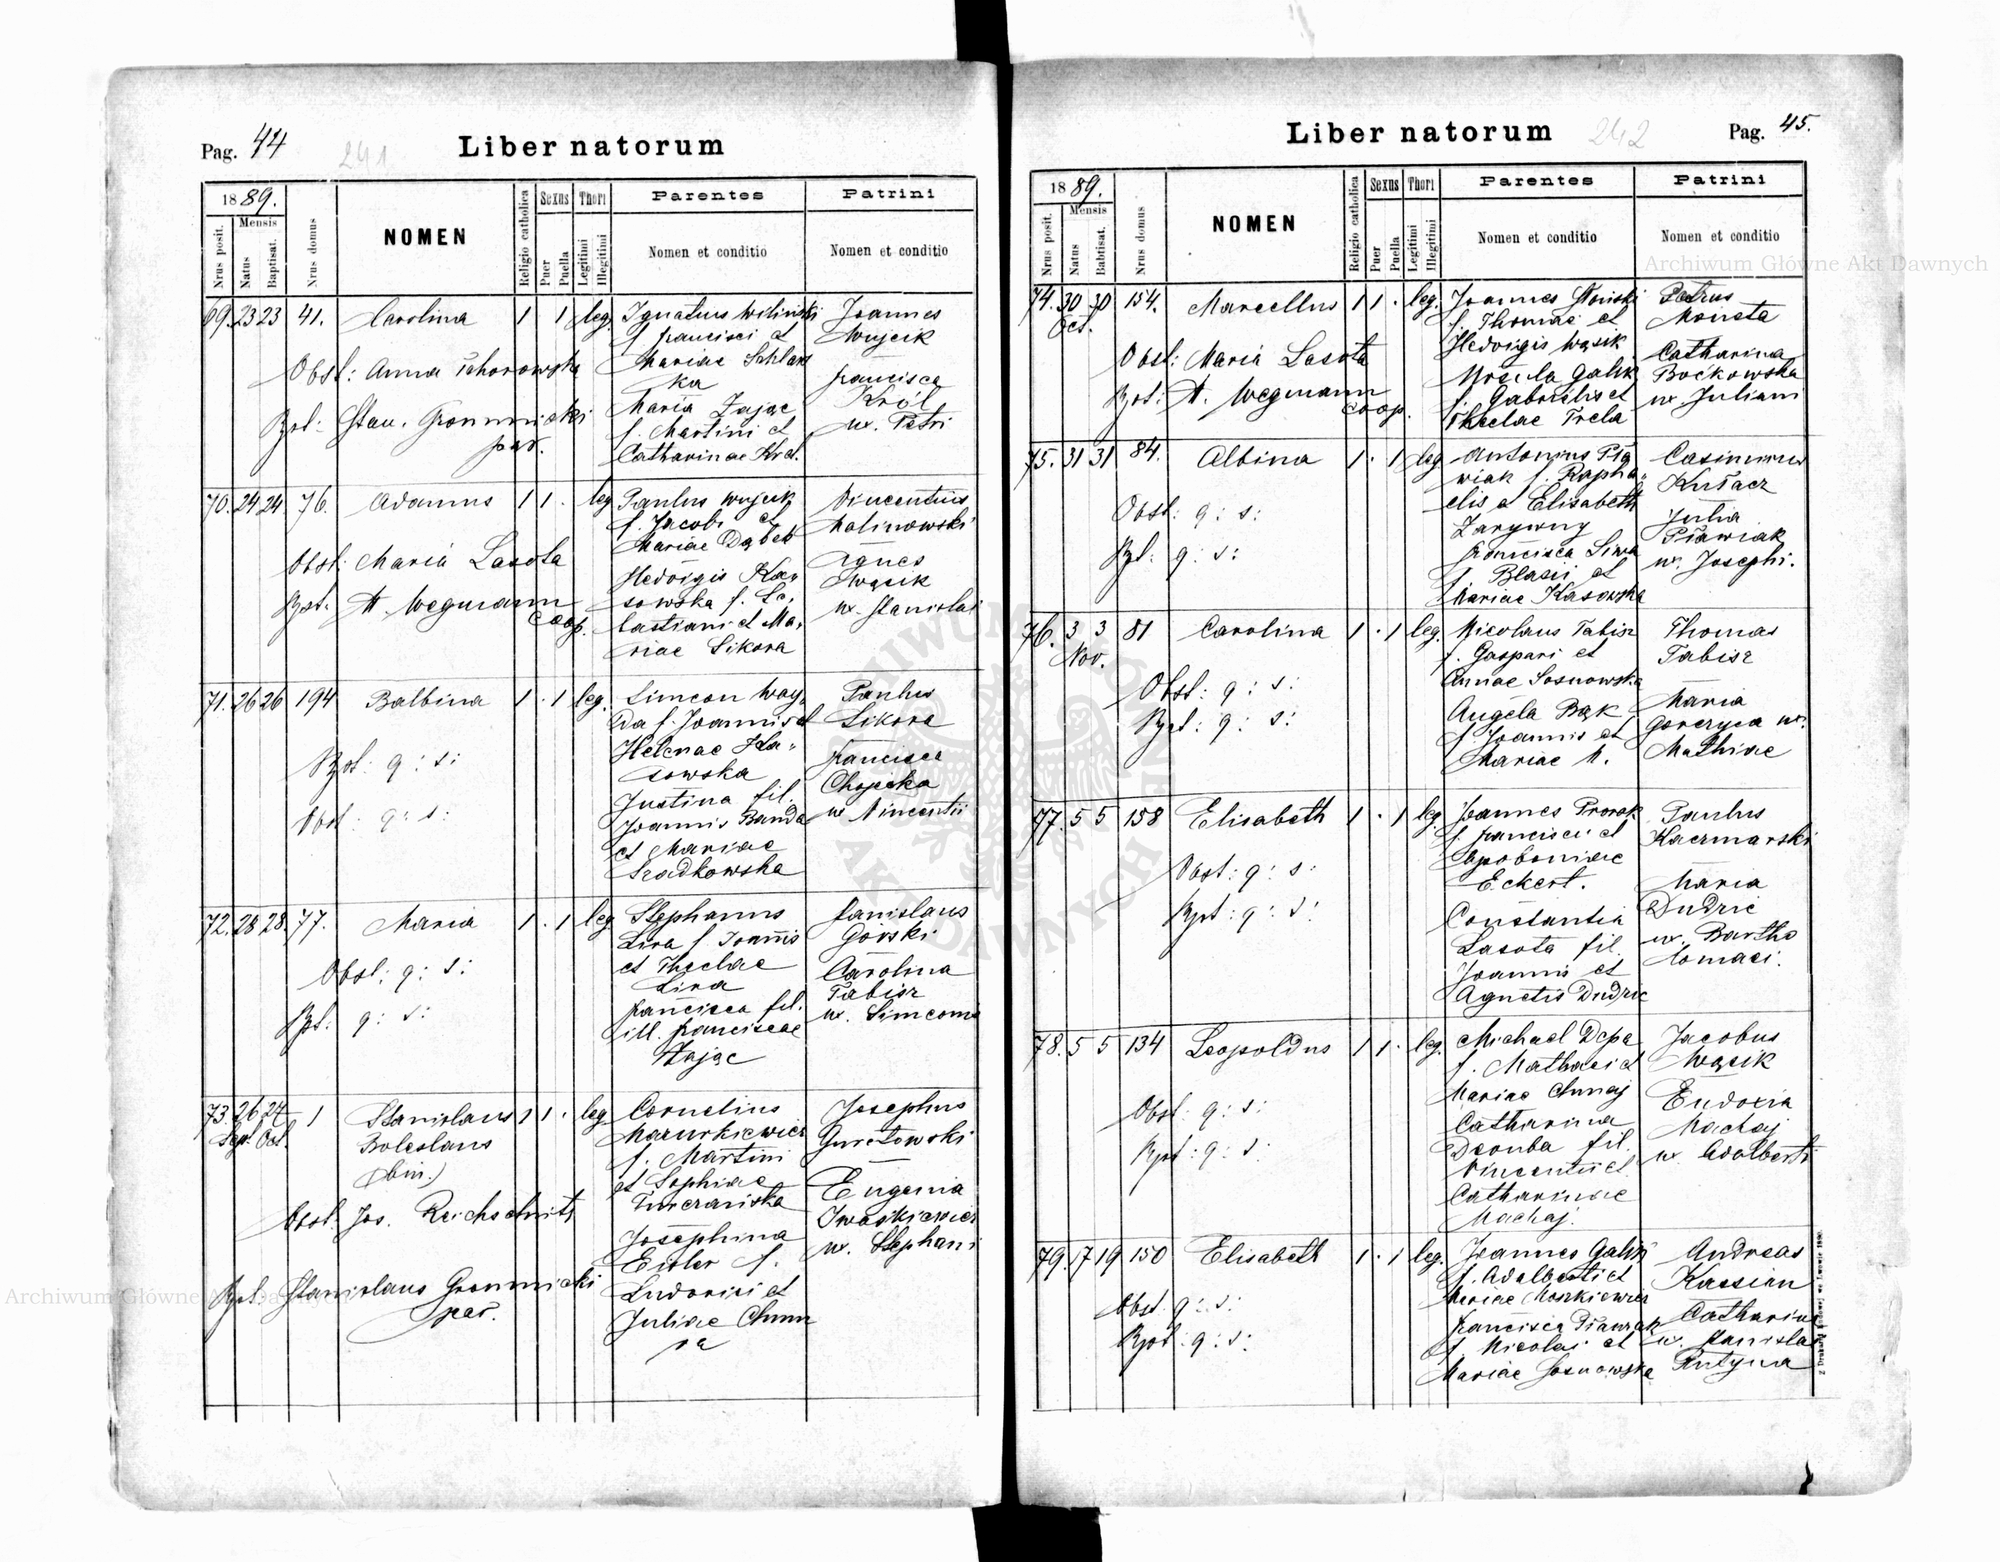 Pag. 44
241
Liber natorum
1889.
Mensis
Nrus posit.
Natus
Baptisat.
Nrus domus
NOMEN
Religio catholica
Sexus
Puer
Puella
Thori
Legitimi
Illegitimi
Parentes
Nomen et conditio
Patrini
Nomen et conditio
69. 23 23 41. Carolina 1 1 leg.
Obst: Anna
Bpt: Stan. Gromnicki
par.
Ignatius Wilinski
f. Francisci et
Mariae
Maria Zając
f. Martini et
Catharinae
Joannes
Wujcik
Francisca
Król
ux. Petri
70. 24 24 76. Adamus 1 1 . leg
Obst: Maria Lasota
Bpt: A. Wegmann
coop.
Paulus Wujcik
f. Jacobi et
Mariae
Hedvigis Ka-
sowska f. Se-
bastiani et Ma-
riae Sikora
Vincentius
Malinowski
Agnes
Wąsik
ux. Stanislai
71. 26 26 194 Balbina 1 . 1 leg.
Bpt: q: s:
Obst: q: s:
Simeon Way-
da f. Joannis et
Helenae Ka-
sowska
Justina fil.
Joannis Banda
et Mariae
Sradkowska
Paulus
Sikora
Francisca
Chojecka
ux Vincentii
72. 28 28. 77. Maria 1 . 1 leg
Obst: q: s:
Bpt: q: s:
Stephanus
Lira f. Joannis
et Theclae
Lira
Francisca fil.
ill. Franciscae
Zając
Stanislaus
Górski
Carolina
Tabisz
ux. Simeonis
73. 26 24 1 Stanislaus 1 1 . leg
Sept. Oct.
Boleslaus
(bin.)
Obst: Jos. Reichschnitt
Bpt: Stanislaus Gromnicki
par.
Cornelius
Mazurkiewicz
f. Martini
et Sophiae
Josephina
Eisler f.
Ludovici et
Juliae
Josephus
Guretowski
Eugenia
Iwaśkiewicz
ux. Stephani
Liber natorum
242
Pag. 45.
1889.
Mensis
Nrus posit.
Natus
Babtisat.
Nrus domus
NOMEN
Religio catholica
Sexus
Puer
Puella
Thori
Legitimi
Illegitimi
Parentes
Nomen et conditio
Patrini
Nomen et conditio
74. 30 30 154. Marcellus 1 1 . leg.
Oct.
Obst: Maria Lasota
Bpt: A. Wegmann
coop.
Joannes
f. Thomae et
Hedvigis Wąsik
Ursula Galik
f. Gabrielis et
Theclae Trela
Petrus
Moneta
Catharina
Boćkowska
ux Juliani
75. 31 31 84. Albina 1 . 1 leg
Obst: q: s:
Bpt: q: s:
Antonius Pia
wiak f. Rapha-
elis e Elisabeth
Zarywny
Francisca Siwa
f. Blasii et
Mariae Kasowska
Casimirus
Kusacz
Julia
Piawiak
ux. Josephi.
76. 3 3 81 Carolina 1 . 1 leg.
Nov.
Obst: q: s:
Bpt: q: s:
Nicolaus Tabisz
f. Gaspari et
Annae Sosnowska
Angela Bąk
f. Joannis et
Mariae N.
Thomas
Tabisz
Maria
Goreczna ux.
Mathiae
77. 5 5 158 Elisabeth 1 . 1 leg
Obst: q: s:
Bpt: q: s:
Joannes Prorok
f. Francisci et
Apoloniae
Eckert.
Constantia
Lasota fil.
Joannis et
Agnetis Dudric
Paulus
Kaczmarski
Maria
Dudric
ux. Bartho
lomaei.
78. 5 5 134 Leopoldus 1 1 . leg.
Obst: q: s:
Bpt: q: s:
Michael Depa
f. Mathaei et
Mariae Chmaj
Catharina
Dziuba fil.
Vincentii et
Catharinae
Machaj.
Jacobus
Wąsik
Eudoxia
Machaj
ux Adalberti
79. 17 19 150 Elisabeth 1 . 1 leg.
Obst. q: s:
Bpt: q: s:
Joannes Galik
f. Adalberti et
Mariae Moszkiewicz
Francisca Piawiak
f. Nicolai et
Mariae Sosnowska
Andreas
Kassian
Catharina
ux. Stanislai
Rutyna
Archiwum Główne Akt Dawnych
Archiwum Główne Akt Dawnych